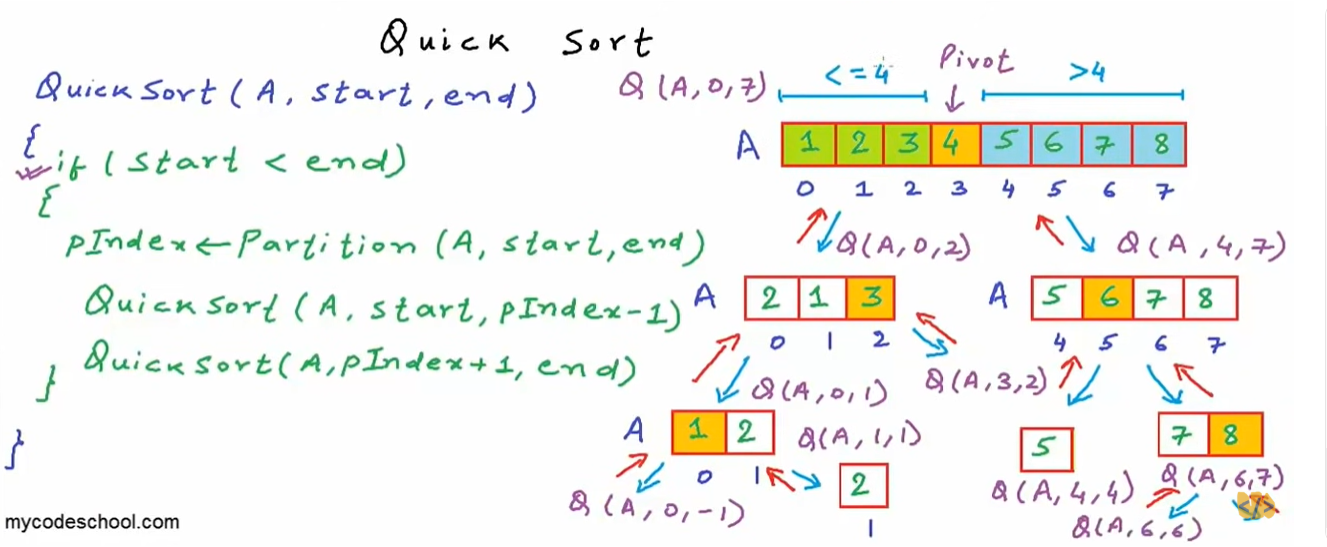 Quick Sort
QuickSort(A, start, end)
{
if (start < end)
{
pIndex ← Partition (A, start, end)
QuickSort (A, start, pIndex-1)
QuickSort(A, pIndex+1, end)
}
}
mycodeschool.com
Q (A, 0, 7)
<= 4
Pivot
>4
A 1 2 3 4 5 6 7 8
0 1 2 3 4 5 6 7
Q(A, 0, 2)
Q(A, 4, 7)
A 2 1 3
0 1 2
A 5 6 7 8
4 5 6 7
Q(A, 0, 1)
Q(A, 3, 2)
A 1 2
0 1
Q(A, 1, 1)
Q (A, 0, -1)
2
1
5
Q(A, 4, 4)
7 8
Q(A, 6, 7)
Q(A, 6, 6)